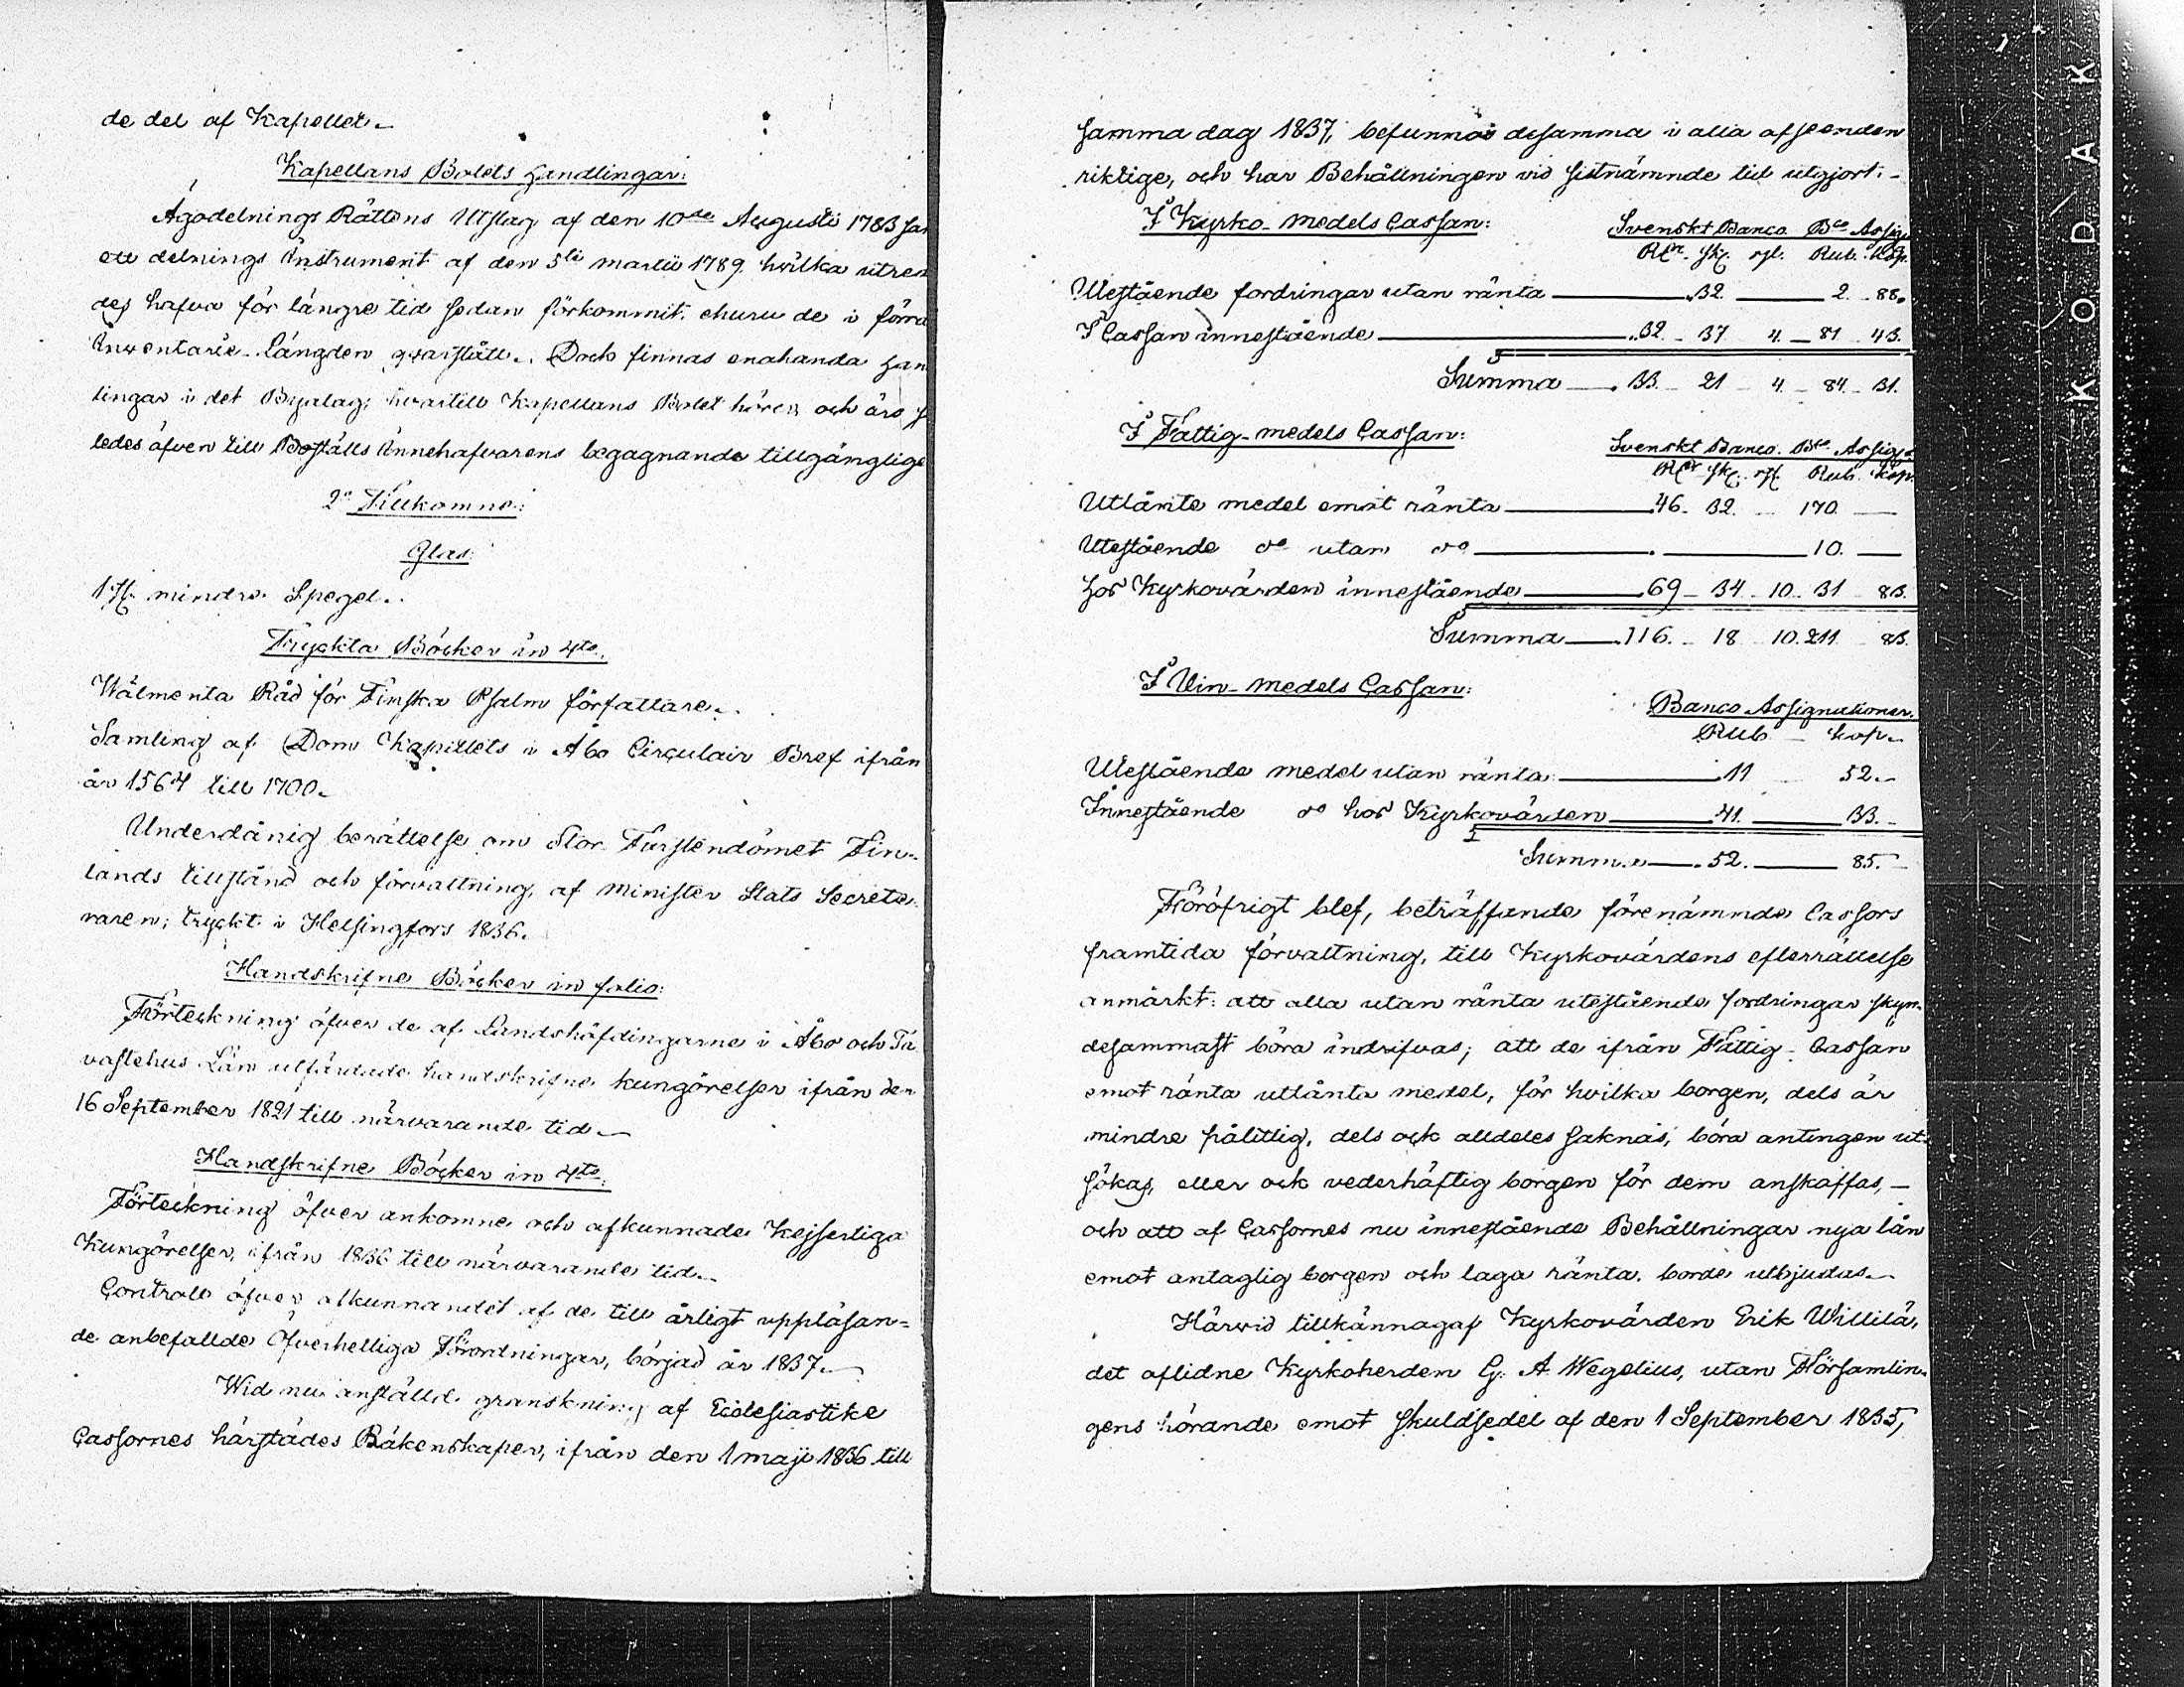 de del af Kapellet.
Kapellans Bolets Handlingar:
Ägodelnings Rättens Utslag af den 10de Augusti 1783 sa
ett delnings Instrument af den 5te Martii 1789, hvilka
des hafva för längre tid sedan förkommit, ehuru de i förra
Inventarie-Längden qvarstått. Dock finnas enahanda Han
lingar i det Byalag, hvartill Kapellans Bolet hörer och äro
ledes äfven till Boställs Innehafvarens begagnande tillgänglige
2o Tillkomne:
Glas:
1 St. mindre Spegel.
Tryckta Böcker in 4to.
Wälmenta Råd för Finska Psalm författare.
Samling af Dom Kapitlets i Åbo Circulair Bref ifrån
år 1564 till 1700.
Underdånig berättelse om Stor Furstendömet Fin-
lands tillstånd och förvaltning, af Minister Stats Secrete-
raren; tryckt i Helsingfors 1836.
Handskrifne Böcker in folio:
Förteckning öfver de af Landshöfdingarne i Åbo och Ta
vastehus Län utfärdade handskrifne kungörelser ifrån den
16 September 1821 till närvarande tid.
Handskrifne Böcker in 4to.
Förteckning öfver ankomne och afkunnade Kejserliga
Kungörelser, ifrån 1836 till närvarande tid.
Controll öfver afkunnandet af de till årligt uppläsan=
de anbefallde Öfverhelliga Förordningar, börjad år 1837.
Wid nu anställd granskning af Ecclesiastike
Cassornes härstädes Räkenskaper, ifrån den 1 Maji 1836 till
samma dag 1837, befunnos desamma i alla afseenden
riktige, och har Behållningen vid sistnämnde tid utgjort:
I Kyrko-medels Cassan: Svenskt Banco Bco Assig
RDr. sk. rst. Rub. Kop.
Utestående fordringar utan ränta 32. 2. 88.
I Cassan innestående 32. 37 4. 81 43.
Summa 33. 21 4. 84. 31.
I Fattig-medels Cassan: Svenskt Banco. Bco Assig
RDr sk. rst. Rub. Kop.
Utlånte medel emot ränta 46. 32. 170.
Utestående do utan do 10.
Hos Kyrkovärden innestående 69 34 10. 31 83.
Summa 116. 18 10. 211 83.
I Vin-medels Cassan: Banco Assignationer.
Rub. kop.
Utestående medel utan ränta 11 52.
Innestående do hos Kyrkovärden 41. 33.
Summa 52. 85.
Föröfrigt blef, beträffande förenämnde Cassors
framtida förvaltning, till Kyrkovärdens efterrättelse
anmärkt: att alla utan ränta utestående fordringar skyn-
desammast böra indrifvas; att de ifrån Fattig-Cassan
emot ränta utlånta medel, för hvilka borgen, dels är
mindre pålitlig, dels ock alldeles saknas, böra antingen ut-
sökas, eller ock vederhäftig borgen för dem anskaffas,
och att af Cassornes nu innestående Behållningar nya lån
emot antaglig borgen och laga ränta, borde utbjudas.
Härvid tillkännagaf Kyrkovärden Erik Willilä,
det aflidne Kyrkoherden G. A. Wegelius, utan Församlin-
gens hörande emot skuldsedel af den 1 September 1835,
KODAK